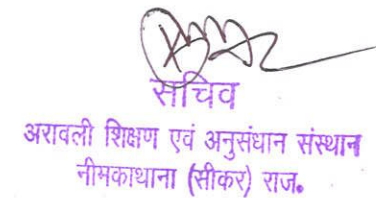 सचिव
अरावली शिक्षण एवं अनुसंधान संस्थान
नीमकाथाना (सीकर) राज.